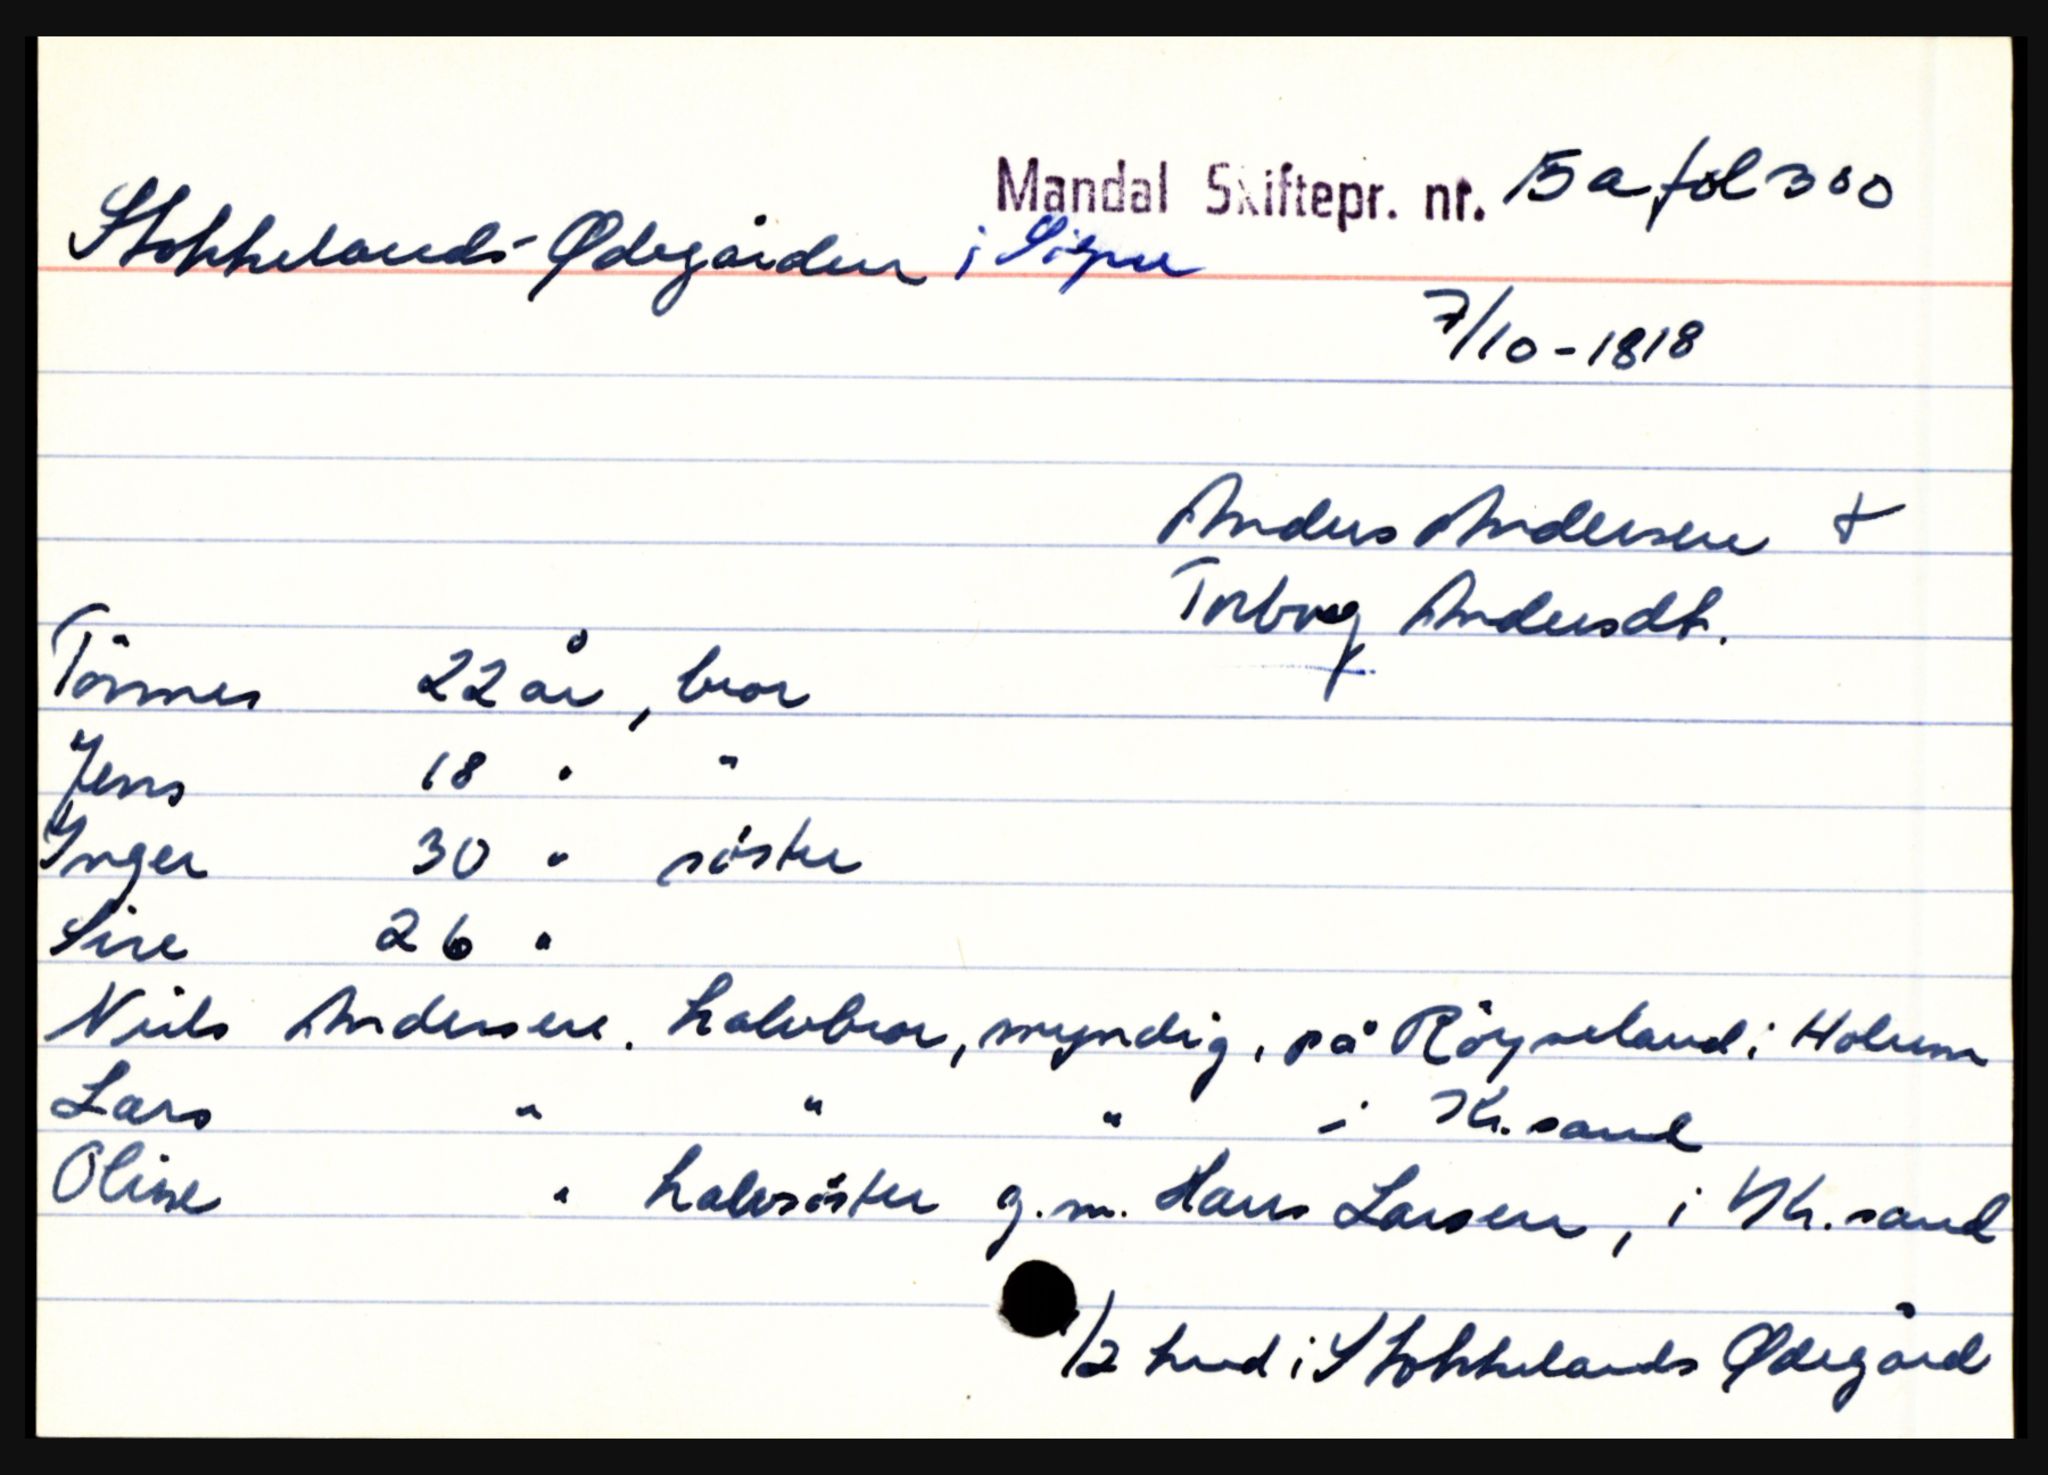 Mandal Skiftepr. nr. 15 a fol 300
Stokkelands-Ødegården i Søgne
7/10-1818
Anders Andersen +
Torborg Andersdt.
Tönnes 22 år, bror
Jens 18 " "
Inger 30 " söster
Sire 26 "
Niels Andersen. halvbror, myndig, på Röyseland i Holum
Lars " " " i Kr.sand
Oline " halvsöster g.m. Hans Larsen, i Kr.sand
1/2 hud i Stokkelands Ødegård